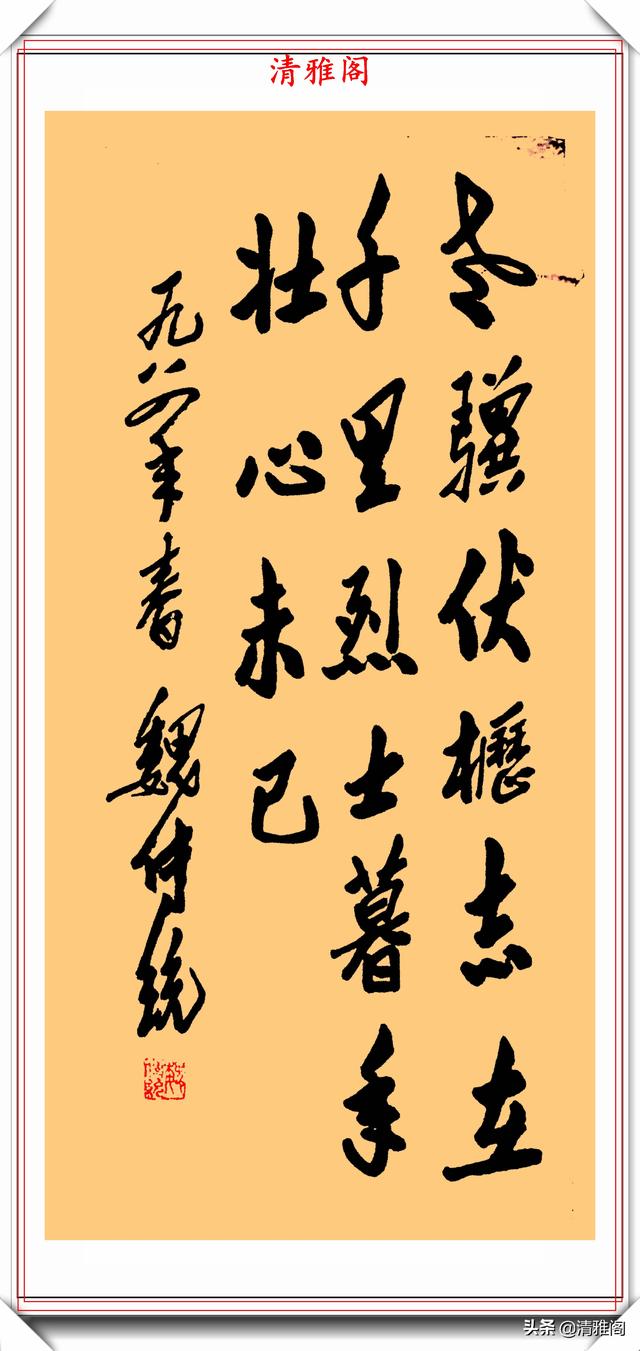 清雅阁
老驥伏櫪志在
千里烈士暮年
壯心未已
一九八年春 魏傳統
头条 @清雅阁